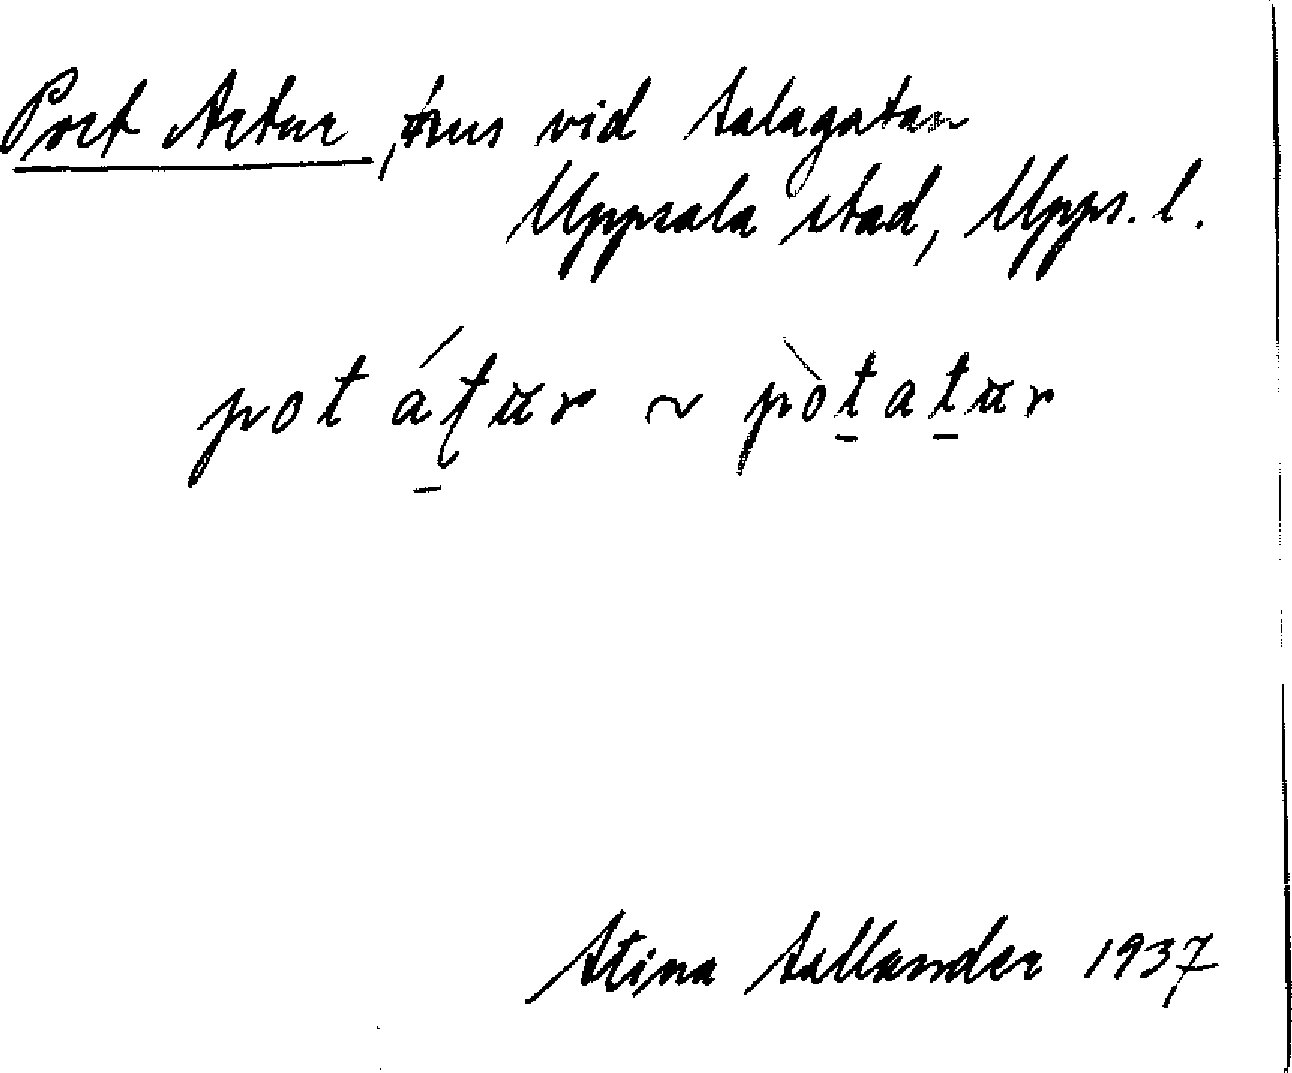 Port Artur, hus vid Salagatan
Uppsala stad, Upps. l.
pot áʈur ~ pòtatur
Stina Sellander 1937